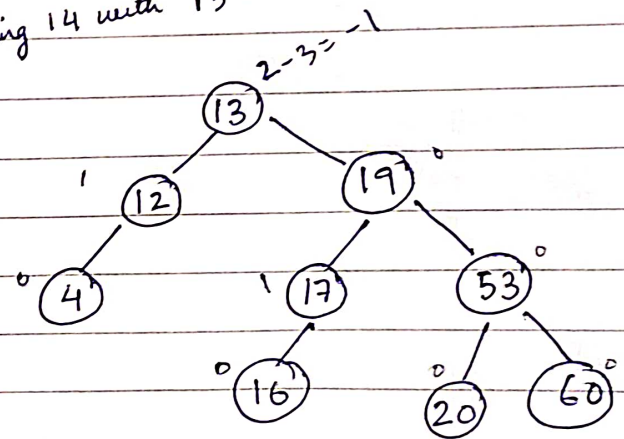 14 with 13
2-3=-1
13
1 12 19 0
0 4 1 17 53 0
0 16 0 20 60 0